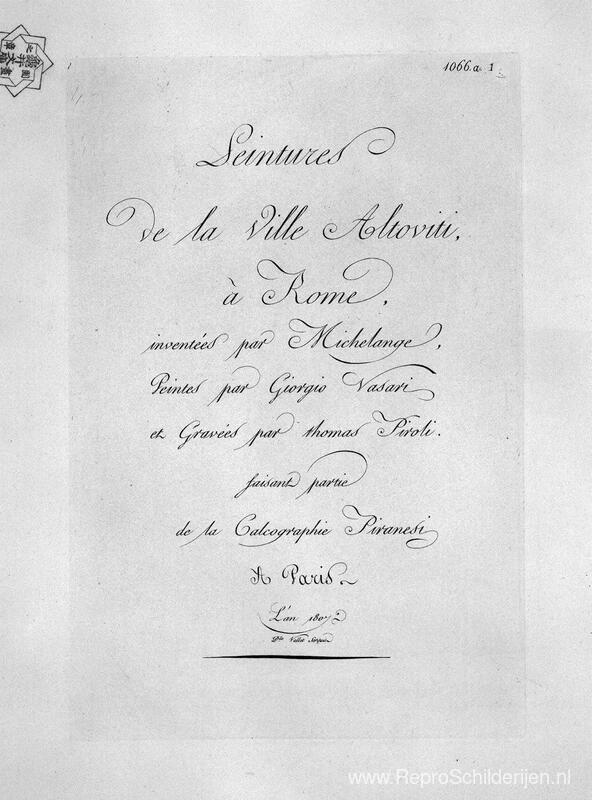 1066.a 1
Peintures
de la Ville Altoviti,
à Rome,
inventées par Michelange,
Peintes par Giorgio Vasari
et Gravées par thomas Piroli.
faisant partie
de la Calcographie Piranesi
A Paris
L'an 1807
www.ReproSchilderijen.nl